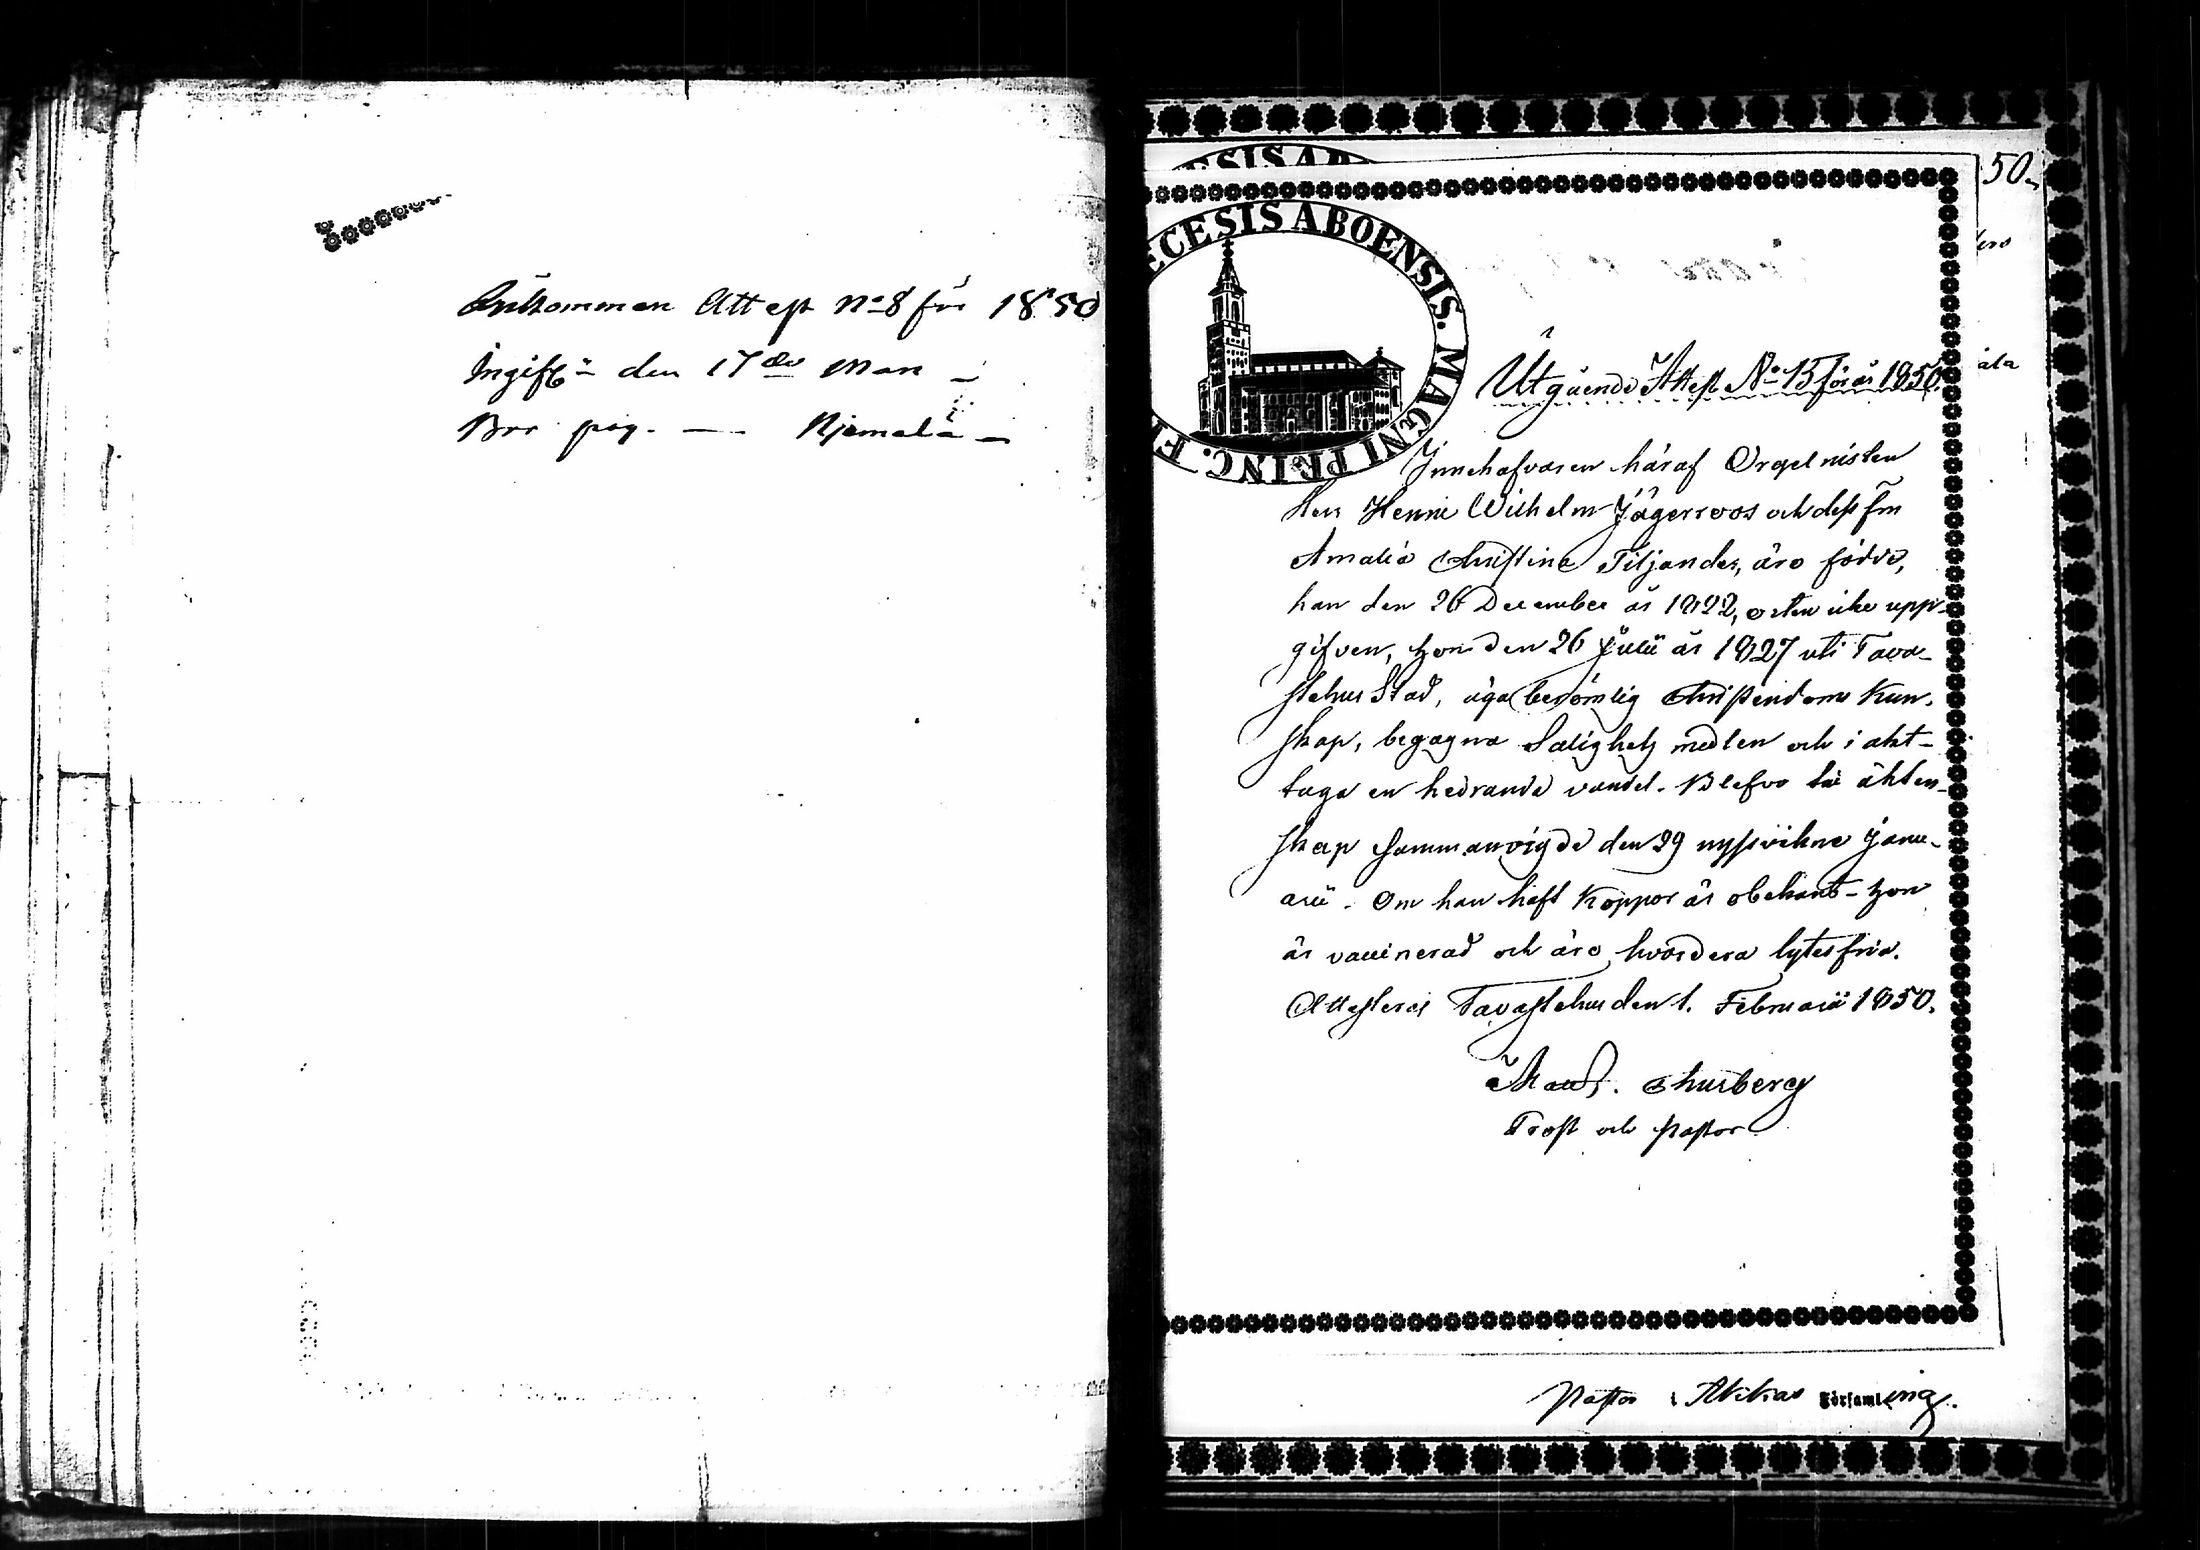 Ankommen Attest No 8 för 1850
Ingift den 17de
Bor pig. — Njemelä —
ESIS AB
50.
ECESIS ABOENSIS. MAGNI PRINC. F
Utgående Attest No 15 för år 1850.
Innehafvaren häraf Orgelnisten
Herr Henric Wilhelm Jägerroos och dess fru
Amalia Christina Tiljander, äro födde,
han den 26 December år 1822, orten icke upp-
gifven, hon den 26 Julii år 1827 uti Tava-
stehus Stad, äga berömlig Christendoms Kun-
skap, begagna Salighets medlen och i akt-
taga en hedrande vandel. Blefvo till äkten-
skap sammanvigde den 29 nyssvikne Janu-
arii. Om han haft Koppor är obekant - hon
är vaccinerad och äro hvardera lytesfria.
Attesteras Tavastehus den 1. Februarii 1850.
Thurberg
Prost och Pastor.
Pastor i Akkas Församling.